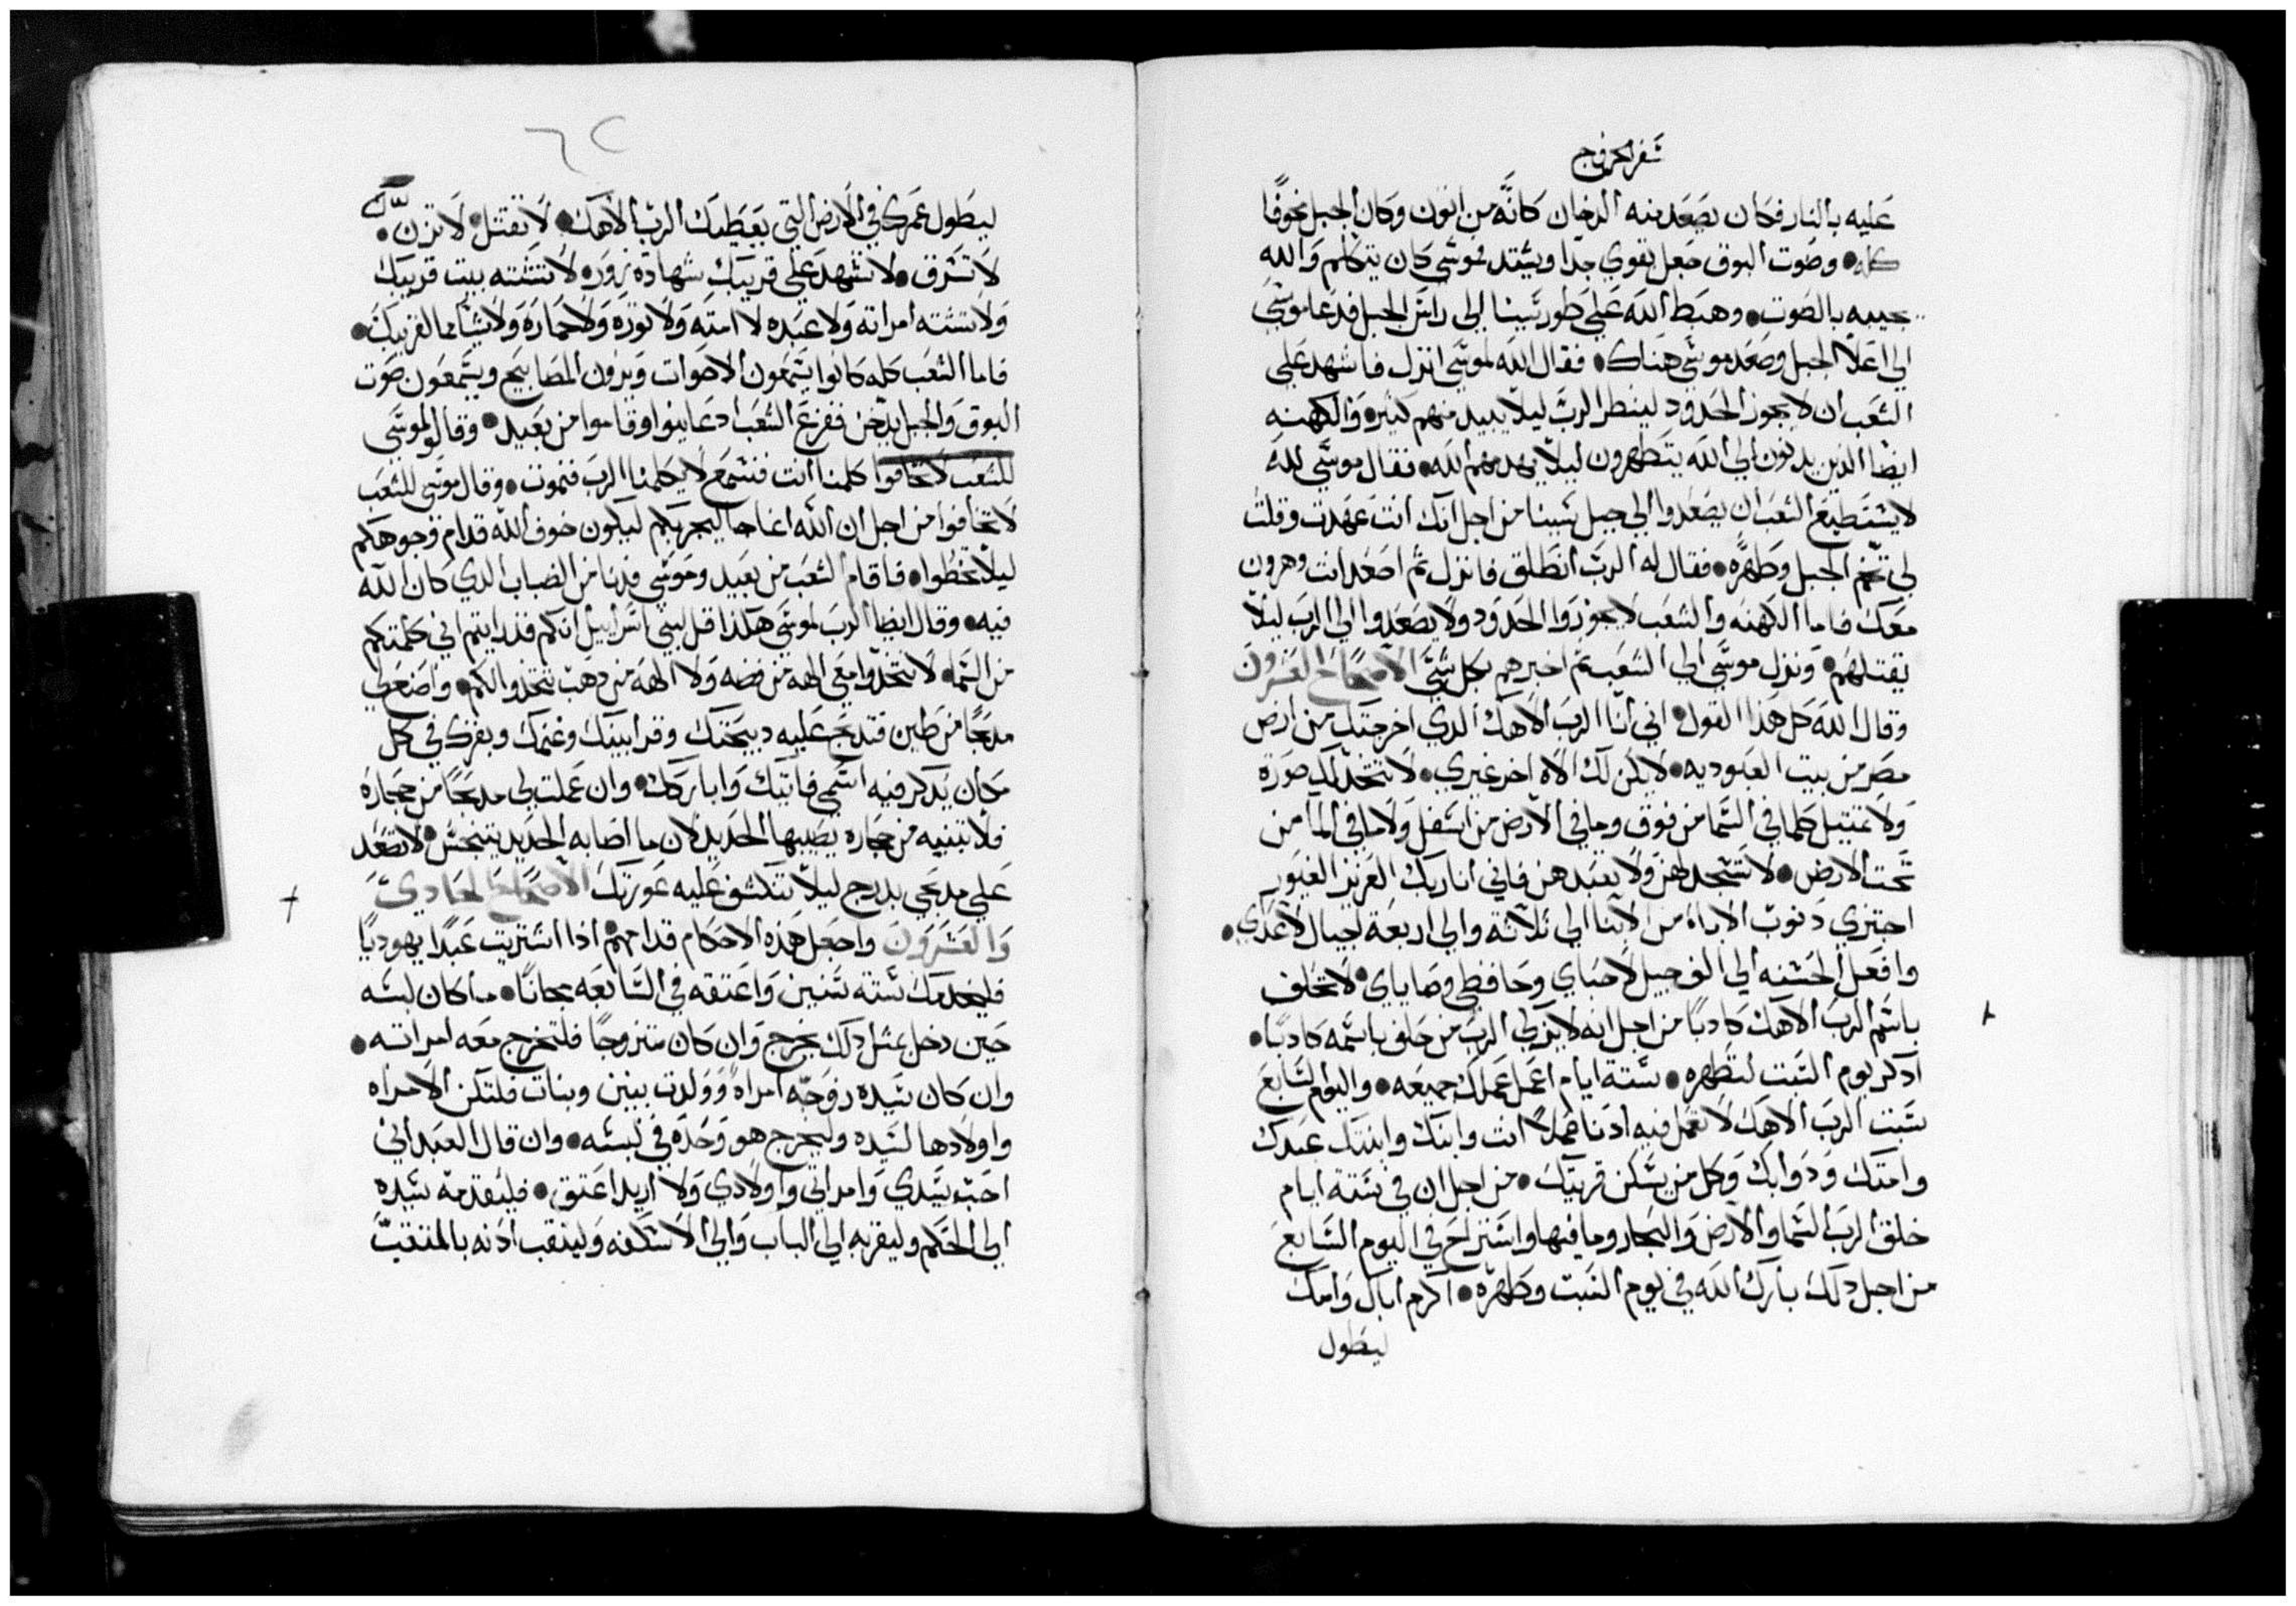 سفر الخروج
عليه بالنار فكان يصعد منه الدخان كانه من اتون وكان الجبل مخوفا
كله وصوت البوق جعل يقوي جدا ويشتد فموسى كان يتكلم والله
يجيبه بالصوت وهبط الله على طور سينا الى راس الجبل فدعا موسى
الى اعلا الجبل وصعد موسى هناك فقال الله لموسى انزل فاشهد على
الشعب ان لا يجوز الحدود لينظر الرب ليلا يبيد منهم كثيره والكهنه
ايضا الدين يدنون الى الله يتطهرون ليلا يهد منهم الله فقال موسى لله
لا يستطيع الشعب ان يصعدوا الى جبل سينا من اجل انك انت عهدت وقلت
لى تخم الجبل وطهره فقال له الرب انطلق فانزل ثم اصعد انت وهرون
معك فاما الكهنه والشعب لا يجوزوا الحدود ولا يصعدوا الى الرب ليلا
يقتلهم ونزل موسى الى الشعب ثم اخبرهم بكل شي الاصحاح العشرون
وقال الله كل هذا القول اني انا الرب الاهك الدي اخرجتك من ارض
مصر من بيت العبوديه لا يكن لك الاه اخر غيري لا تتخد لك صورة
ولا تمتيل كلما في السما من فوق وما في الارض من اسفل ولا ما في الما من
تحت الارض لا تسجد لهن ولا تعبدهن فاني انا ربك العزيز الغيور
اجتزي دنوب الاباء من الابنا الى ثلاثة والى اربعة اجيال لاعداي
وافعل الحسنه الى الف جيل لاحباي وحافظي وصاياي لا تحلف
باسم الرب الاهك كادبا من اجل انه لا يزكي الرب من حلف باسمه كادبا
ادكر يوم السبت لتطهره ستة ايام اعمل عملك جميعه واليوم السابع
سبت الرب الاهك لا تعمل فيه ادنا عملا انت وابنك وابنتك عبدك
وامتك ودوابك وكل من سكن قريتك من اجل ان في ستة ايام
خلق الرب السما والارض والبحار وما فيها واستراح في اليوم السابع
من اجل دلك بارك الله في يوم السبت وطهره اكرم اباك وامك
ليطول
ليطول عمرك في الارض التي يعطيك الرب الاهك لا تقتل لا تزن
لا تسرق لا تشهد على قريبك شهادة زور لا تشته بيت قريبك
ولا تشته امراته ولا عبده لا امته ولا ثوره ولا حماره ولا شيا مما لقريبك
فاما الشعب كله كانوا يسمعون الاصوات ويرون المصابيح ويسمعون صوت
البوق والجبل يدخن ففزع الشعب اد عاينوا وقاموا من بعيد وقالوا لموسى
للشعب لا تخافوا كلمنا انت فنسمع لا يكلمنا الرب فنموت وقال موسى للشعب
لا تخافوا من اجل ان الله انما جا ليجربكم ليكون خوف الله قدام وجوهكم
ليلا تخطوا فاقام الشعب من بعيد وموسى فدنا من الضباب الدي كان الله
فيه وقال ايضا الرب لموسى هكدا قل لبني اسراييل انكم قد رايتم اني كلمتكم
من السما لا تتخدوا معي الهه من فضه ولا الهه من دهب تتخدوا لكم واصنع لي
مدبحا من طين فتدبح عليه دبيحتك وقرابينك وغنمك وبقرك في كل
مكان يدكر فيه اسمي فاتيك واباركك وان عملت لي مدبحا من حجاره
فلا تبنيه من حجاره يصيبها الحديد لان ما اصابه الحديد يتنجس لا تصعد
على مدبحي بدرج ليلا تنكشف عليه عورتك الاصحاح الحادي
والعشرون واجعل هذه الاحكام قدامهم ادا اشتريت عبدا يهوديا
فليخدمك سته سنين واعتقه في السابعه مجانا ما كان لبسه
حين دخل بمثل دلك يخرج وان كان متزوجا فلتخرج معه امراته
وان كان سيده زوجه امراة وولدت بنين وبنات فلتكن الامراه
واولادها لسيده وليخرج هو وحده في لبسه وان قال العبد اني
احب سيدي وامراتي واولادي ولا اريد اعتق فليقدمه سيده
الى الحكم وليقربه الى الباب والى الاسكفه ولينقب ادنه بالمنقب